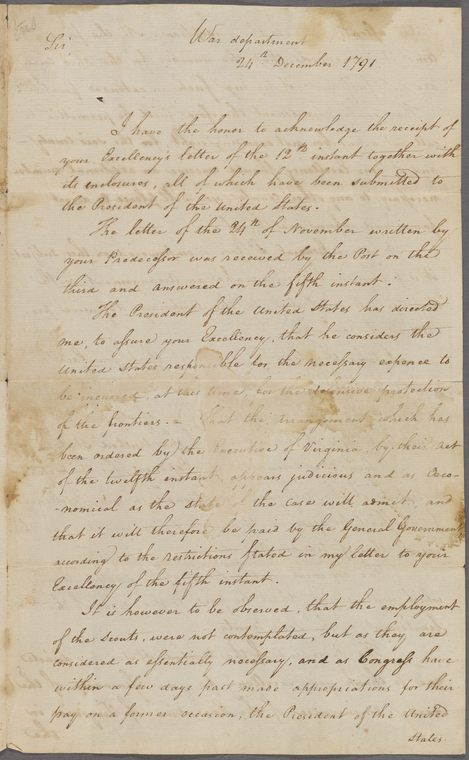 Sir
War department
24th December 1791
I have the honor to acknowledge the receipt of
your Excellency's letter of the 12th instant together with
its enclosures, all of which have been submitted to
the President of the United States.
The letter of the 24th of November written by
your Predecessor was received by the Post on the
third and answered on the fifth instant.
The President of the United States has directed
me, to assure your Excellency, that he considers the
United States responsible for the necessary expence to
be incurred, at this time, for the defensive protection
of the frontiers. – That the arrangement which has
been ordered by the Executive of Virginia, by their Act
of the twelfth instant, appears judicious and as Oeco-
-nomical as the state of the case will admit, and
that it will therefore be paid by the General Government
according to the restrictions stated in my letter to your
Excellency of the fifth instant.
It is however to be observed, that the employment
of the Scouts, were not contemplated, but as they are
considered as essentially necessary, and as Congress have
within a few days past made appropriations for their
pay on a former occasion, the President of the United
States